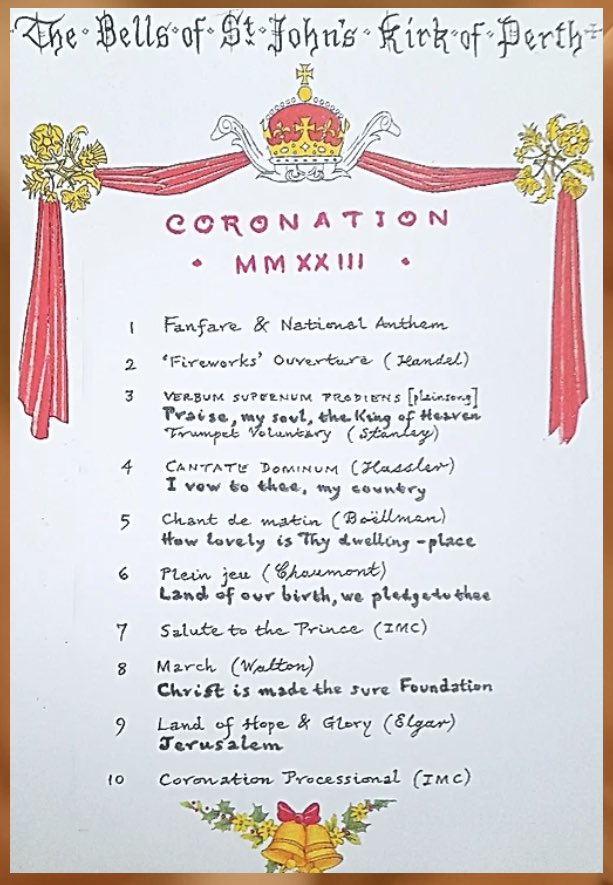 The · Bells · of · St · John's · Kirk · of · Perth
CORONATION
• MMXXIII •
1 Fanfare & National Anthem
2 'Fireworks' Ouverture (Handel)
3 VERBUM SUPERNUM PRODIENS [plainsong]
Praise, my soul, the King of Heaven
Trumpet Voluntary (Stanley)
4 CANTATE DOMINUM (Hassler)
I vow to thee, my country
5 Chant de matin (Boëllman)
How lovely is Thy dwelling-place
6 Plein jeu (Chaumont)
Land of our birth, we pledge to thee
7 Salute to the Prince (IMC)
8 March (Walton)
Christ is made the sure Foundation
9 Land of Hope & Glory (Elgar)
Jerusalem
10 Coronation Processional (IMC)